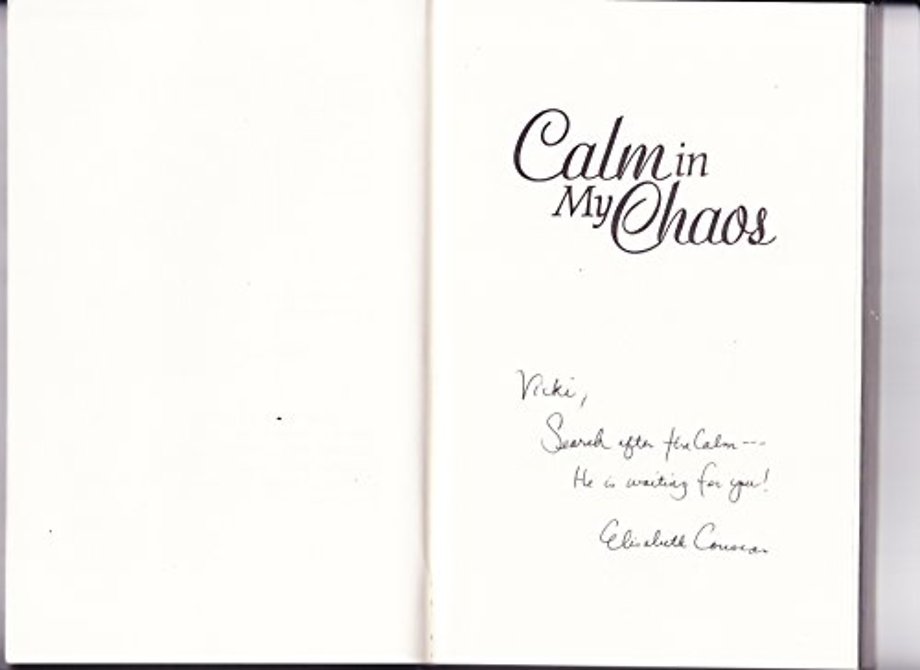 Calm in
My Chaos
Vicki,
Search after the Calm ---
He is waiting for you!
Elisabeth